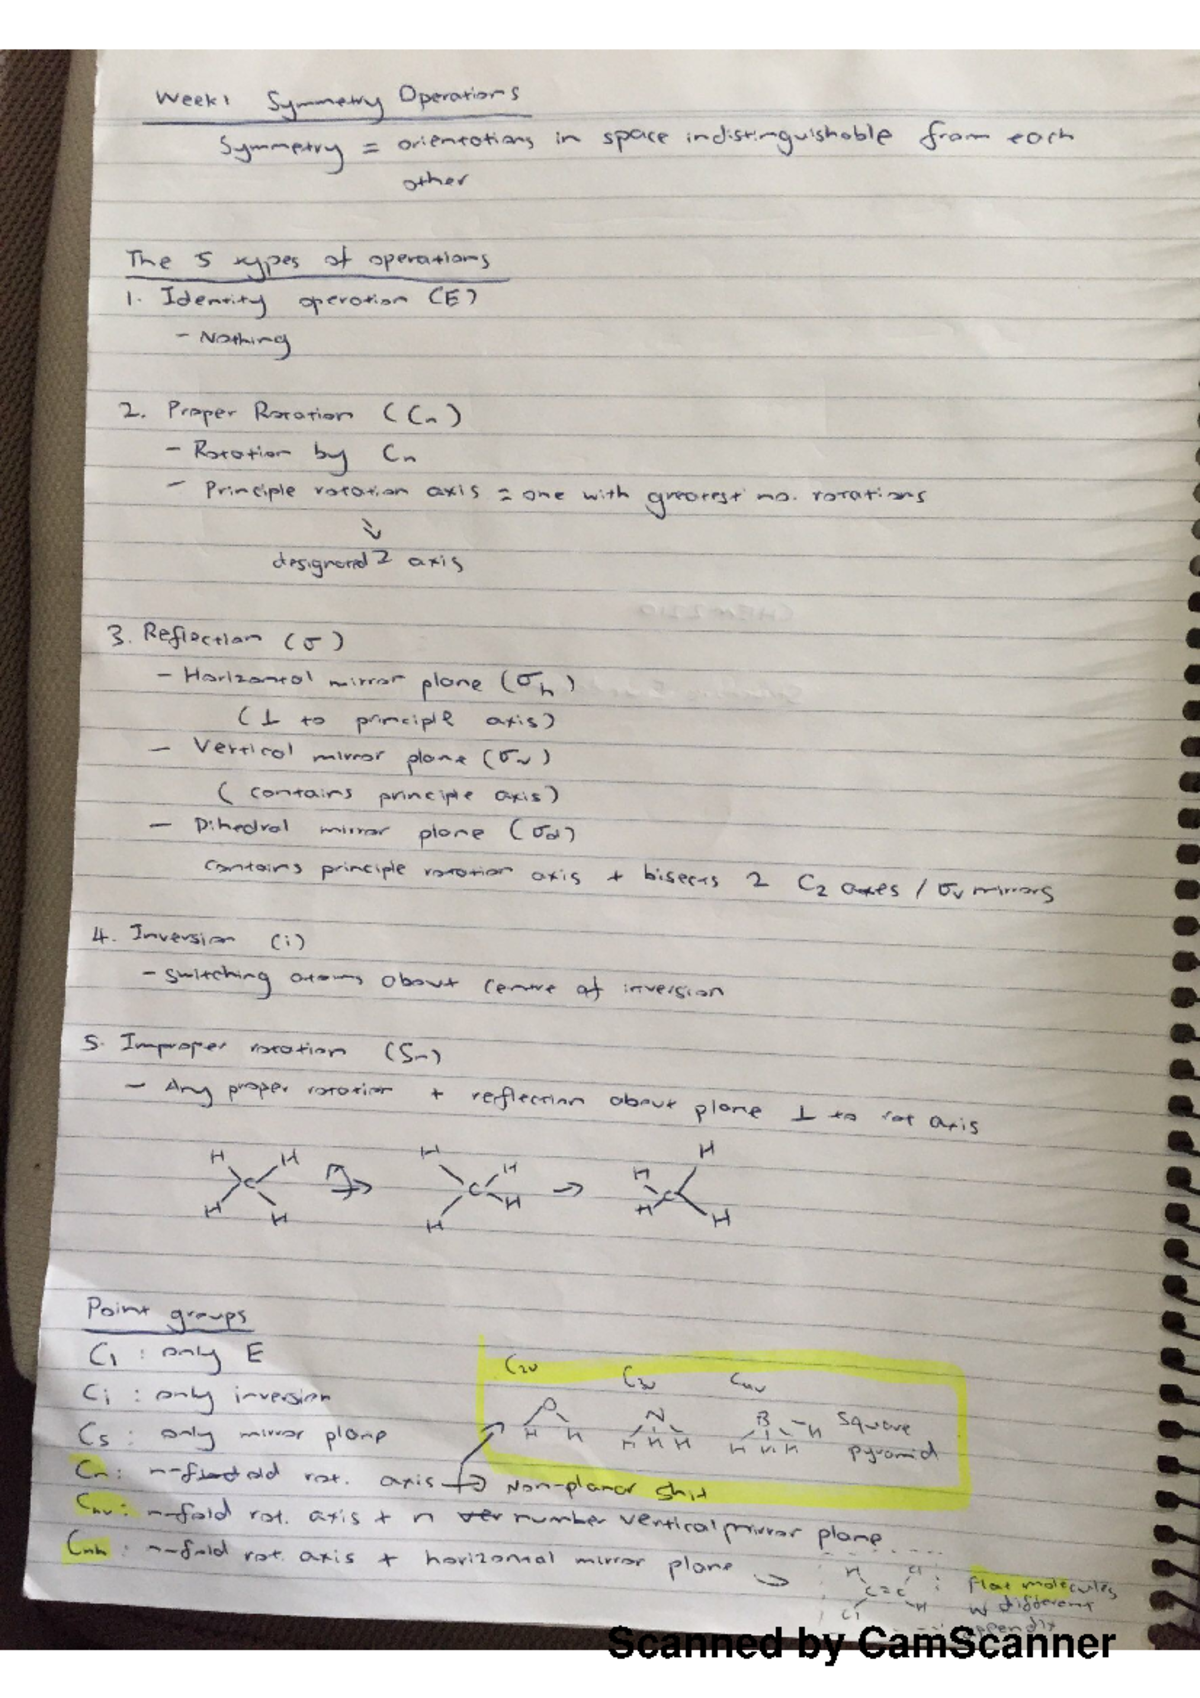 Week 1 Symmetry Operations
Symmetry = orientations in space indistinguishable from each
other
The 5 types of operations
1. Identity operation (E)
- Nothing
2. Proper Rotation (Cn)
- Rotation by Cn
- Principle rotation axis = one with greatest no. rotations
designated z axis
3. Reflection (σ)
- Horizontal mirror plane (σh)
(⊥ to principle axis)
- Vertical mirror plane (σv)
(contains principle axis)
- Dihedral mirror plane (σd)
contains principle rotation axis + bisects 2 C2 axes / σv mirrors
4. Inversion (i)
- Switching atoms about centre of inversion
5. Improper rotation (Sn)
- Any proper rotation + reflection about plane ⊥ to rot axis
H H H H H H
C → C → C
H H H H H H
Point groups
C1 : only E
Ci : only inversion
Cs : only mirror plane
C2v C3v C4v
O N B H Square
H H H H H H H H pyramid
Cn : n-fold rot. axis → Non-planar shit
Cnv : n-fold rot. axis + n number vertical mirror plane
Cnh : n-fold rot. axis + horizontal mirror plane →
H Cl
C=C
Cl H
Flat molecules
w different
appendix
Scanned by CamScanner